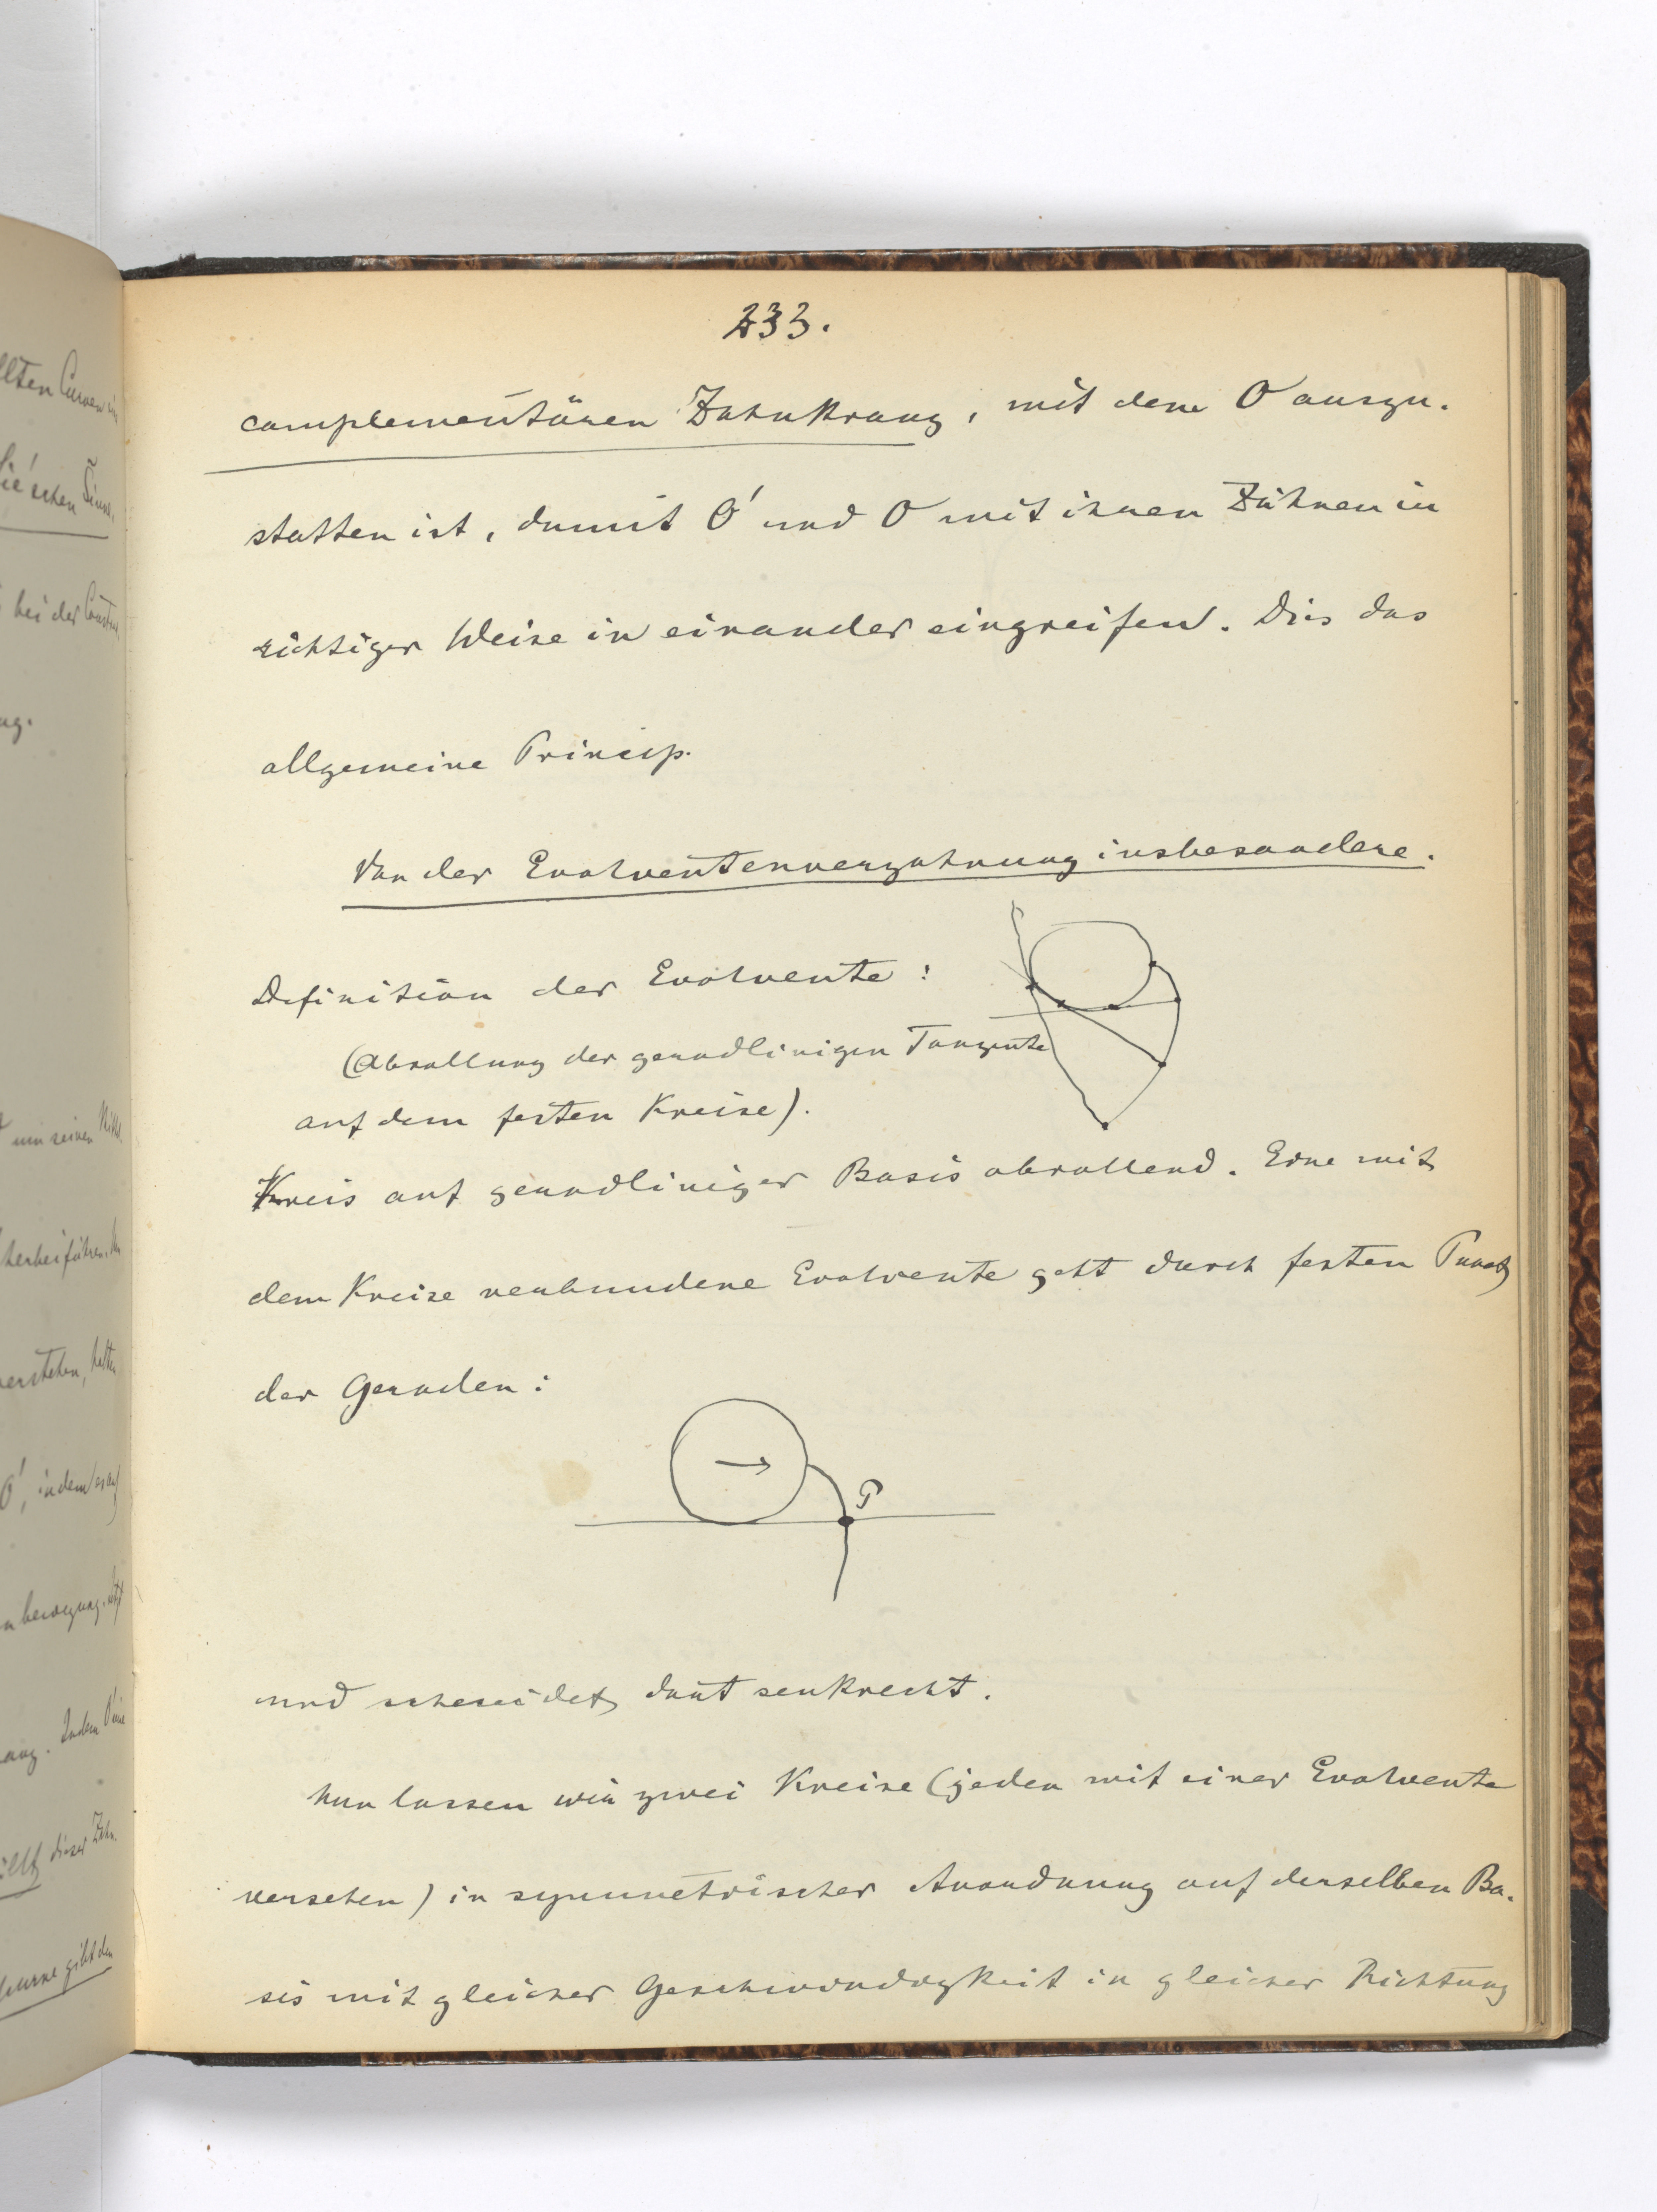 233.
complementären Zahnkranz, mit dem O auszu-
statten ist, damit O' und O mit ihren Zähnen in
richtiger Weise in einander eingreifen. Dies das
allgemeine Princip.
Von der Evolventenverzahnung insbesondere.
Definition der Evolvente:
(Abrollung der geradlinigen Tangente
auf dem festen Kreise).
Kreis auf geradliniger Basis abrollend. Eine mit
dem Kreise verbundene Evolvente geht durch festen Punct
der Geraden:
P
und schneidet dort senkrecht.
Nun lassen wir zwei Kreise (jeden mit einer Evolvente
versehen) in symmetrischer Anordnung auf derselben Ba-
sis mit gleicher Geschwindigkeit in gleicher Richtung